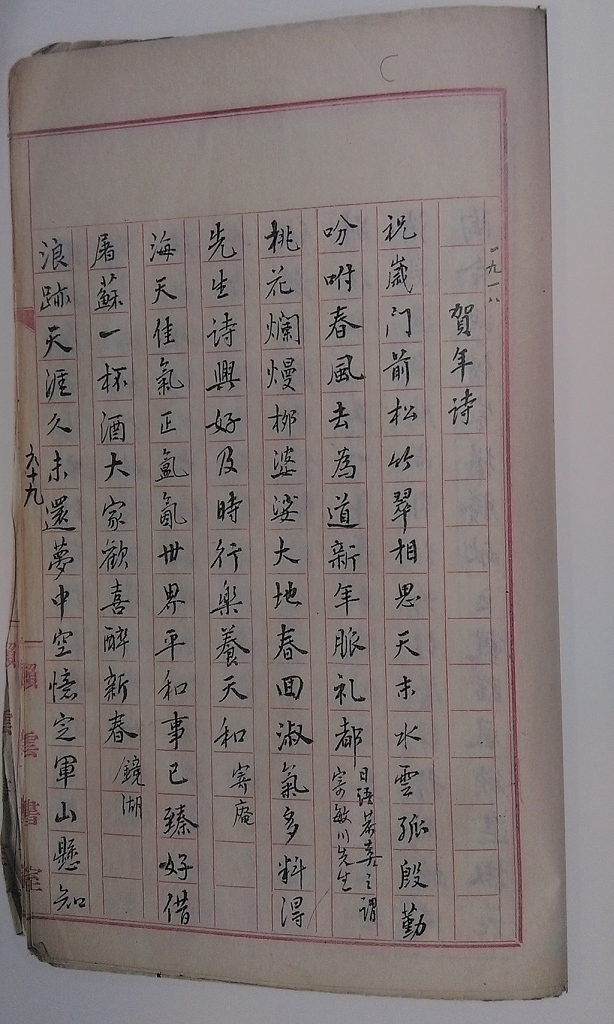 一九一八
賀年诗
祝歲门前松竹翠相思天末水雲孤殷勤
吩咐春風去為道新年脈礼都
日语恭喜之谓
寄敏川先生
桃花爛熳栁婆娑大地春回淑氣多料得
先生诗興好及時行樂養天和 寄庵
海天佳氣正氤氳世界平和事已臻好借
屠蘇一杯酒大家歡喜醉新春 鏡湖
浪跡天涯久未還夢中空憶定軍山懸知
六十九
賴雲書室